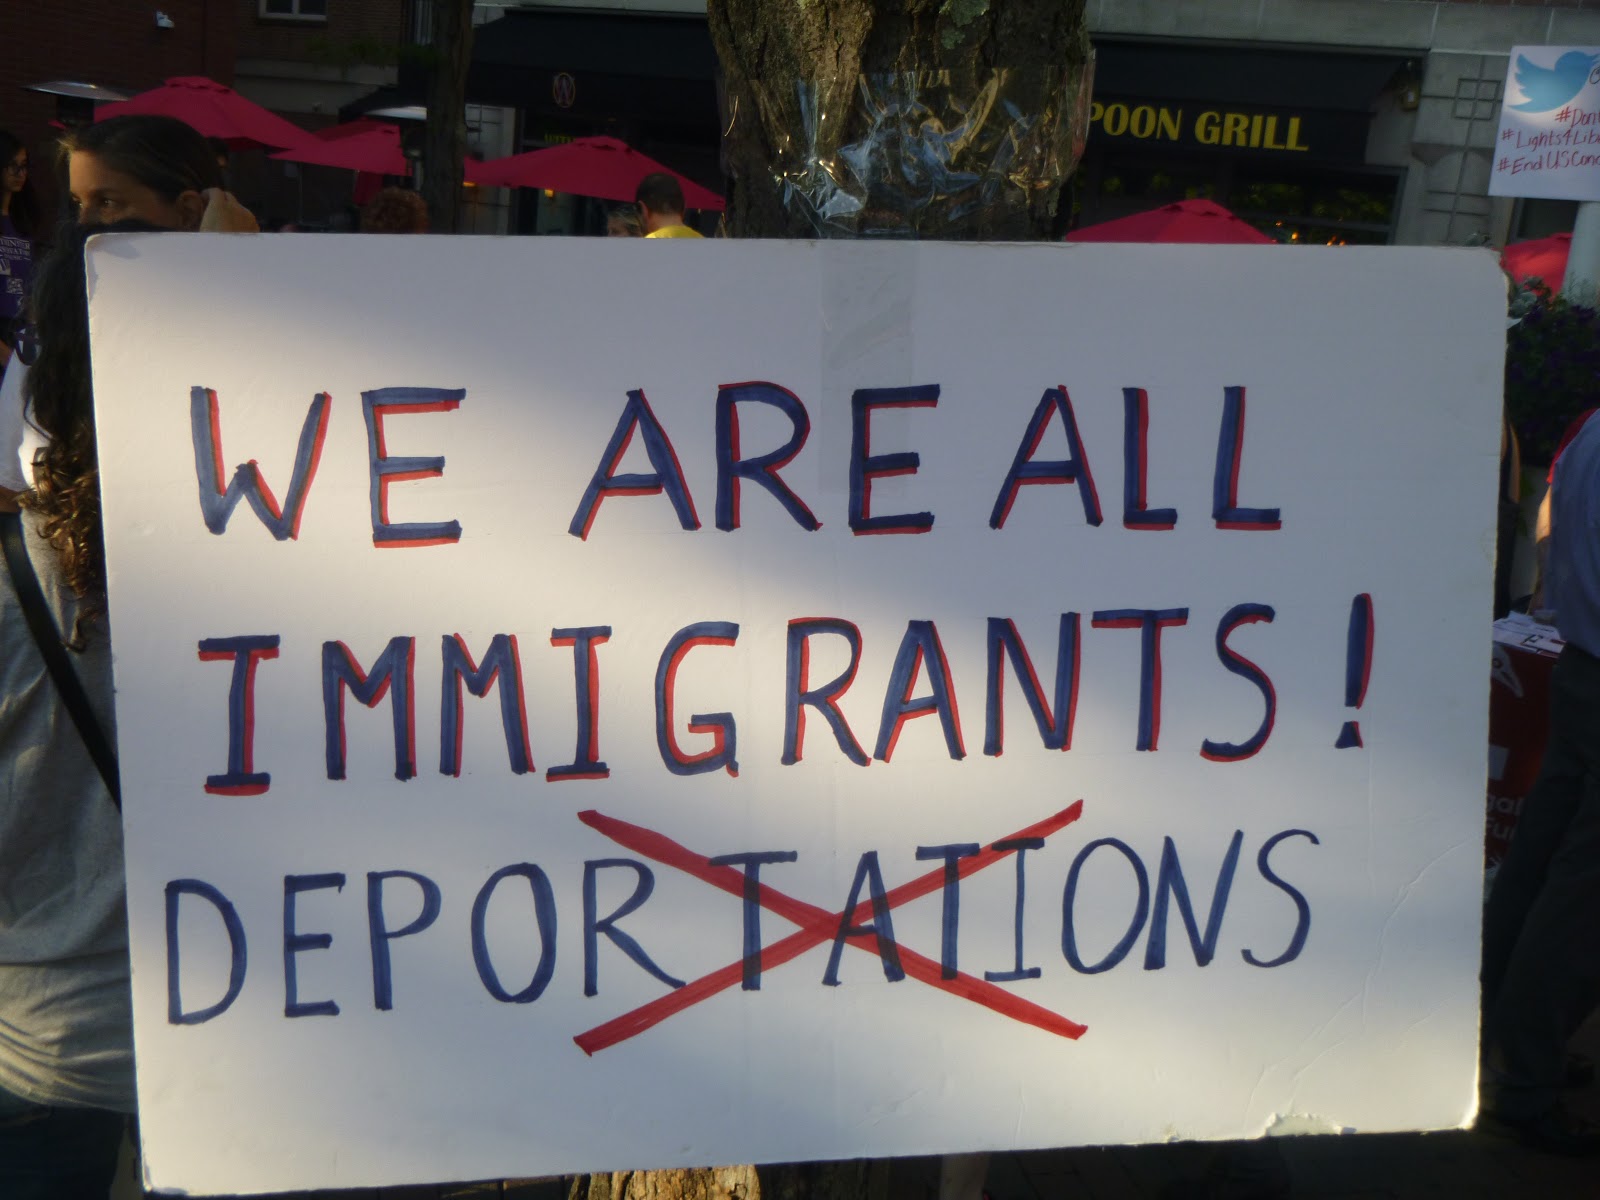 WE ARE ALL
IMMIGRANTS!
DEPORTATIONS
POON GRILL
#Dont
#Lights4Libe
#EndUSConc